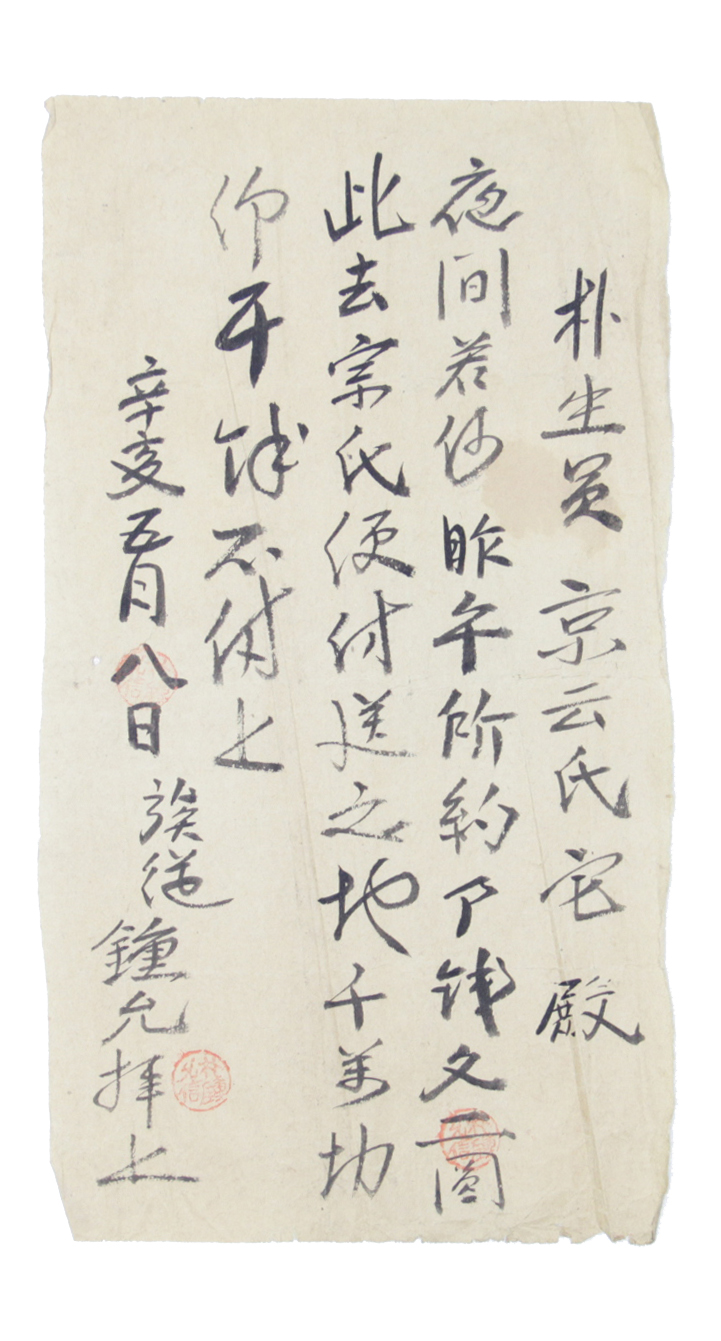 朴生員 京云氏宅 殿
夜間若何 昨午所約 錢文二圓
此去宗氏便付送之地千萬切
仰 不備上
辛亥五月八日 族從
鍾允拜上